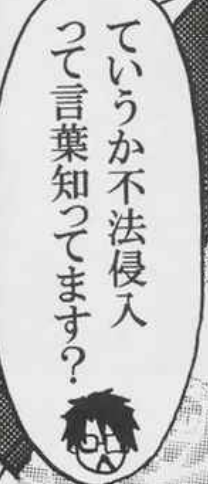 ていうか不法侵入
って言葉知ってます?